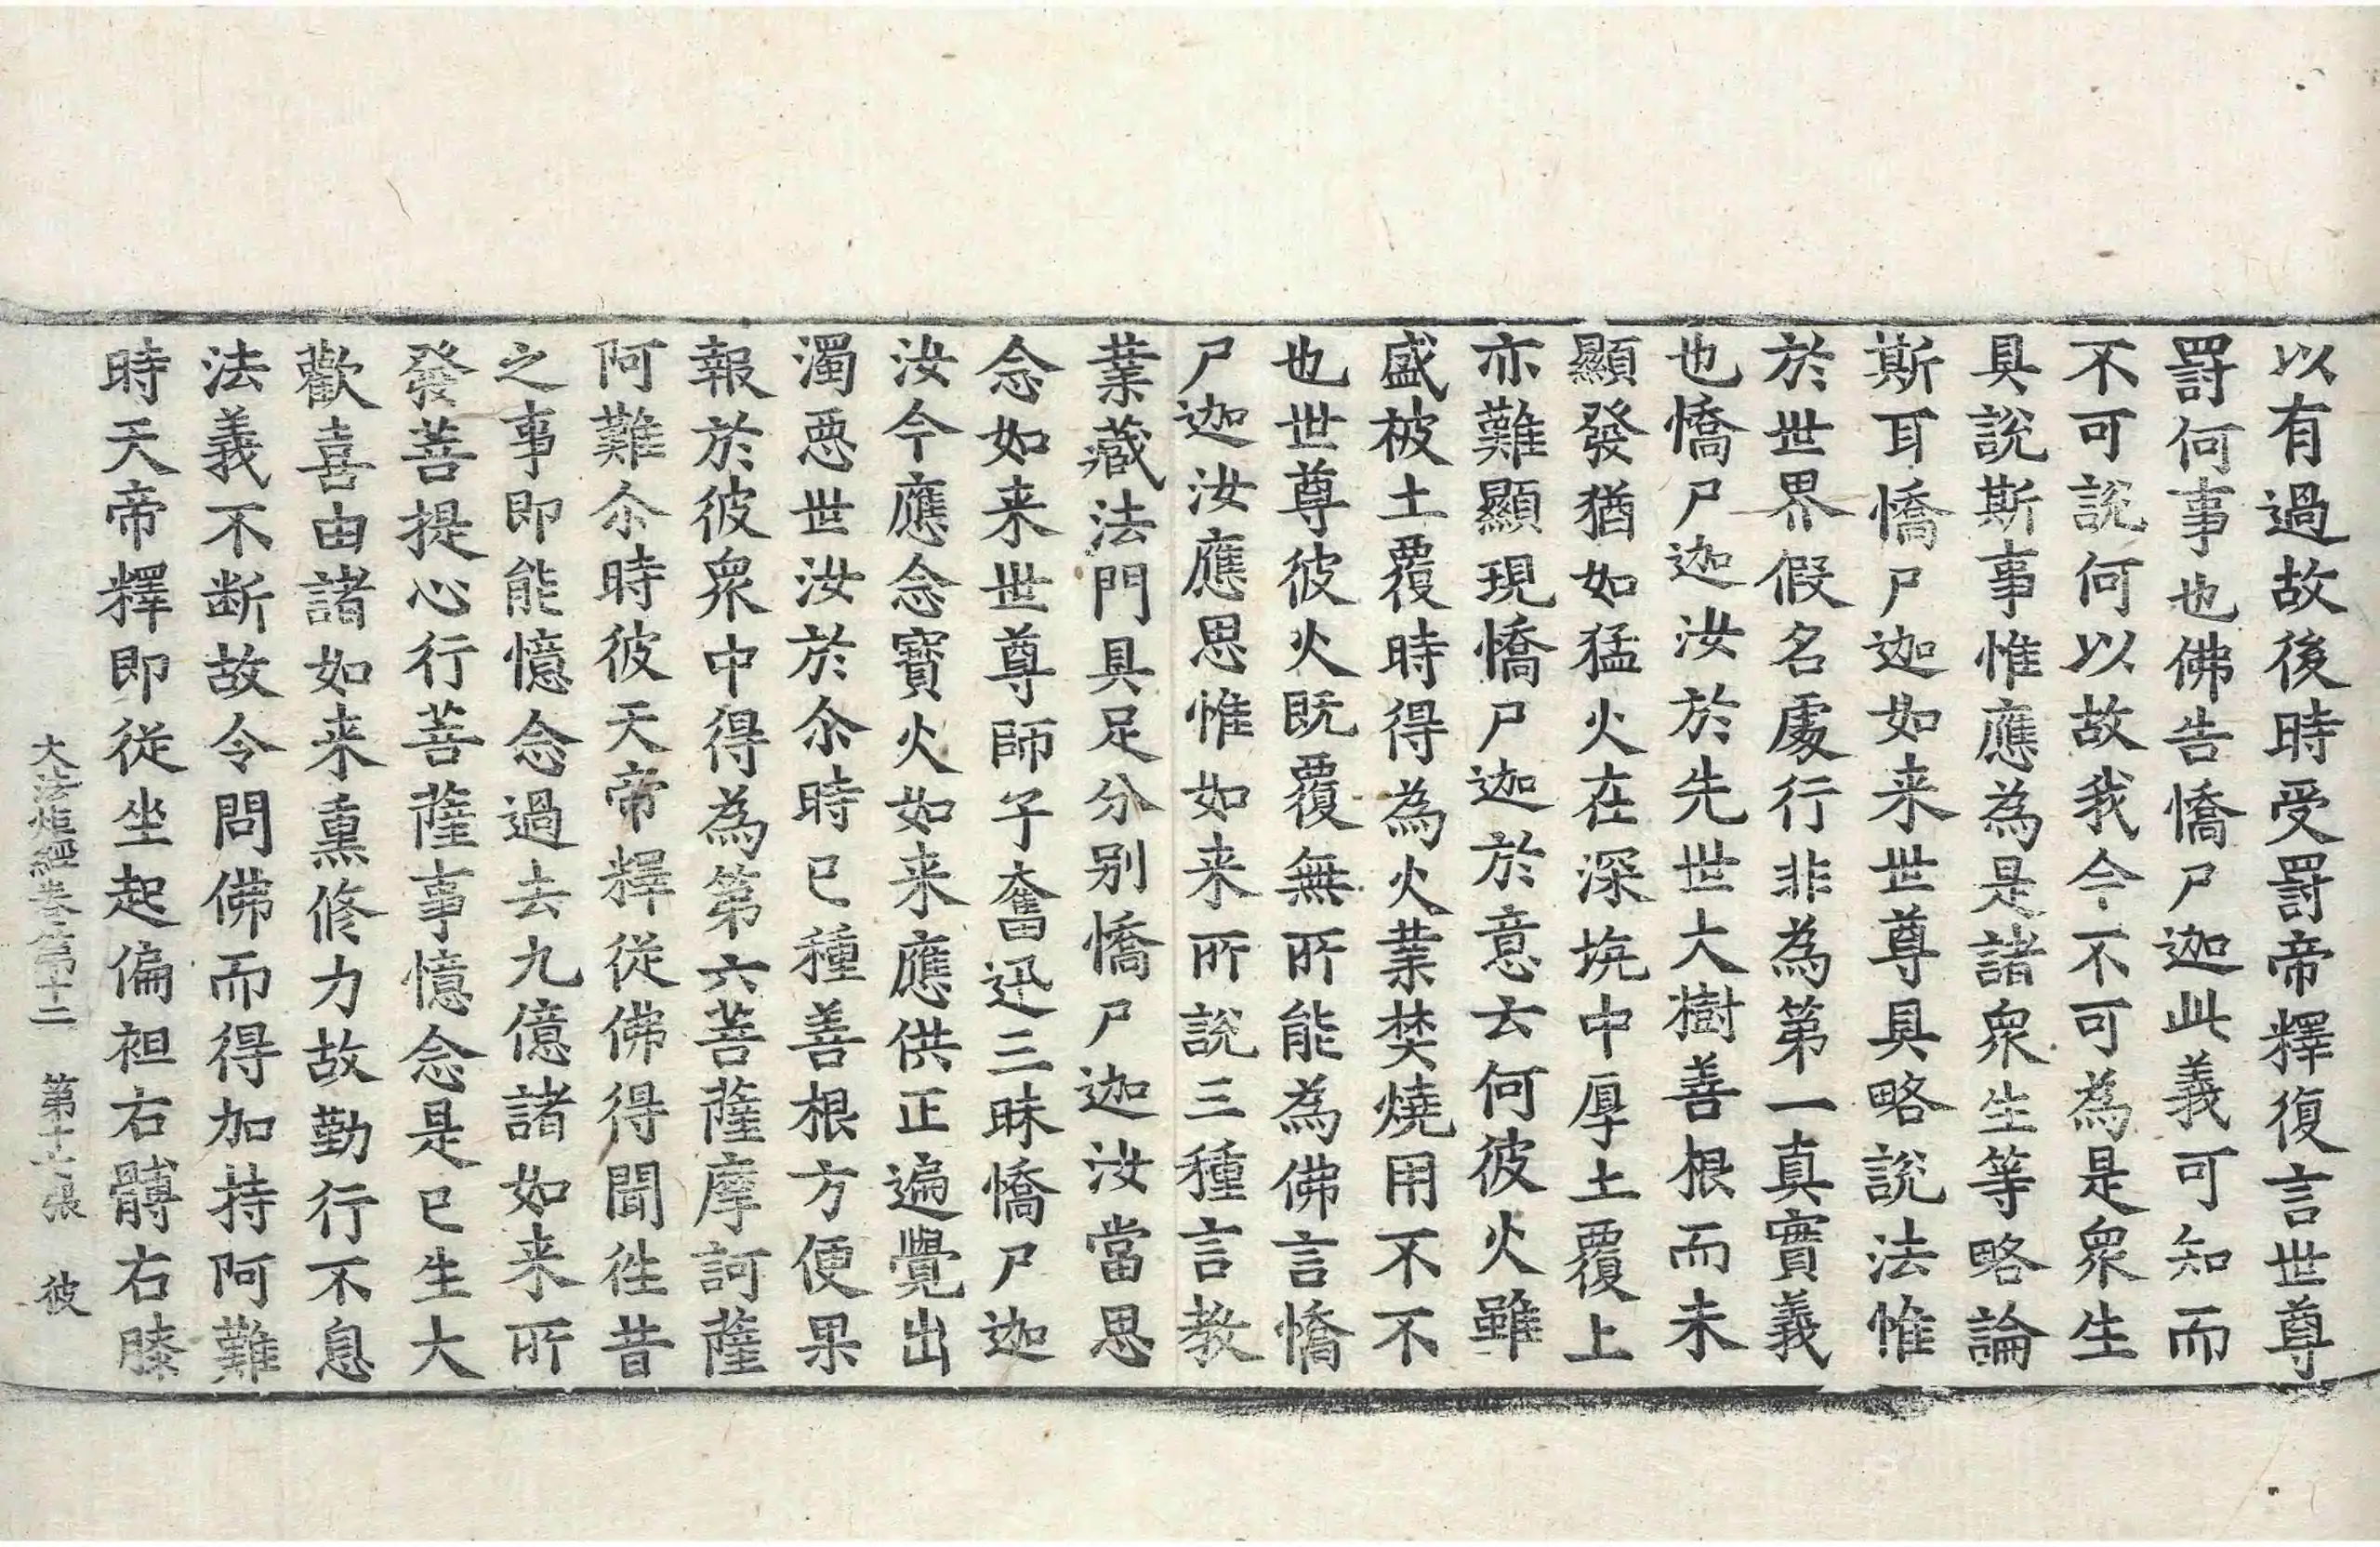 以有過故後時受罸帝釋復言世尊
罸何事也佛告憍尸迦此義可知而
不可說何以故我今不可為是衆生
具說斯事惟應為是諸衆生等略論
斯耳憍尸迦如来世尊具略說法惟
於世界假名處行非為第一真實義
也憍尸迦汝於先世大樹善根而未
顯發猶如猛火在深坑中厚土覆上
亦難顯現憍尸迦於意云何彼火雖
盛被土覆時得為火業焚燒用不不
也世尊彼火既覆無所能為佛言憍
尸迦汝應思惟如来所說三種言教
業藏法門具足分别憍尸迦汝當思
念如来世尊師子奮迅三昧憍尸迦
汝今應念寶火如来應供正遍覺出
濁惡世汝於尒時已種善根方便果
報於彼衆中得為第六菩薩摩訶薩
阿難尒時彼天帝釋從佛得聞往昔
之事即能憶念過去九億諸如来所
發菩提心行菩薩事憶念是已生大
歡喜由諸如来熏修力故勤行不息
法義不断故令問佛而得加持阿難
時天帝釋即從坐起偏袒右髆右膝
大法炬經卷第十二 第十七張 彼